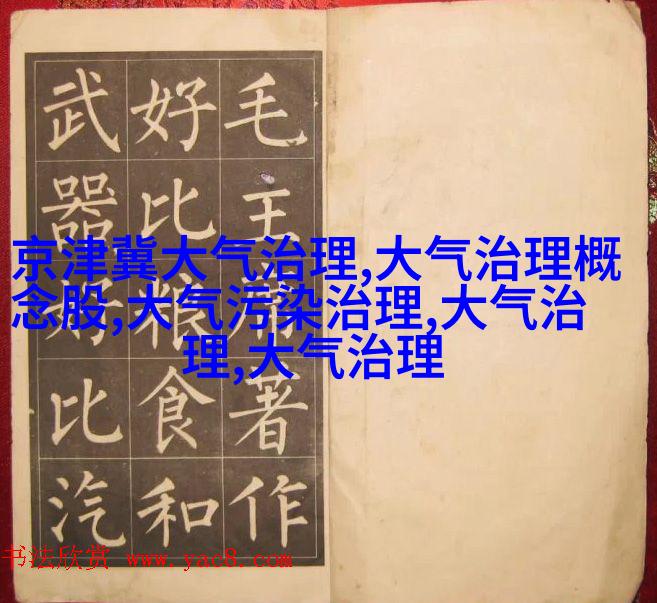 毛主席著作
好比粮食和
武器好比汽
京津冀大气治理,大气治理概
念股,大气污染治理,大气治
理,大气治理
书法欣赏 www.yac8.com